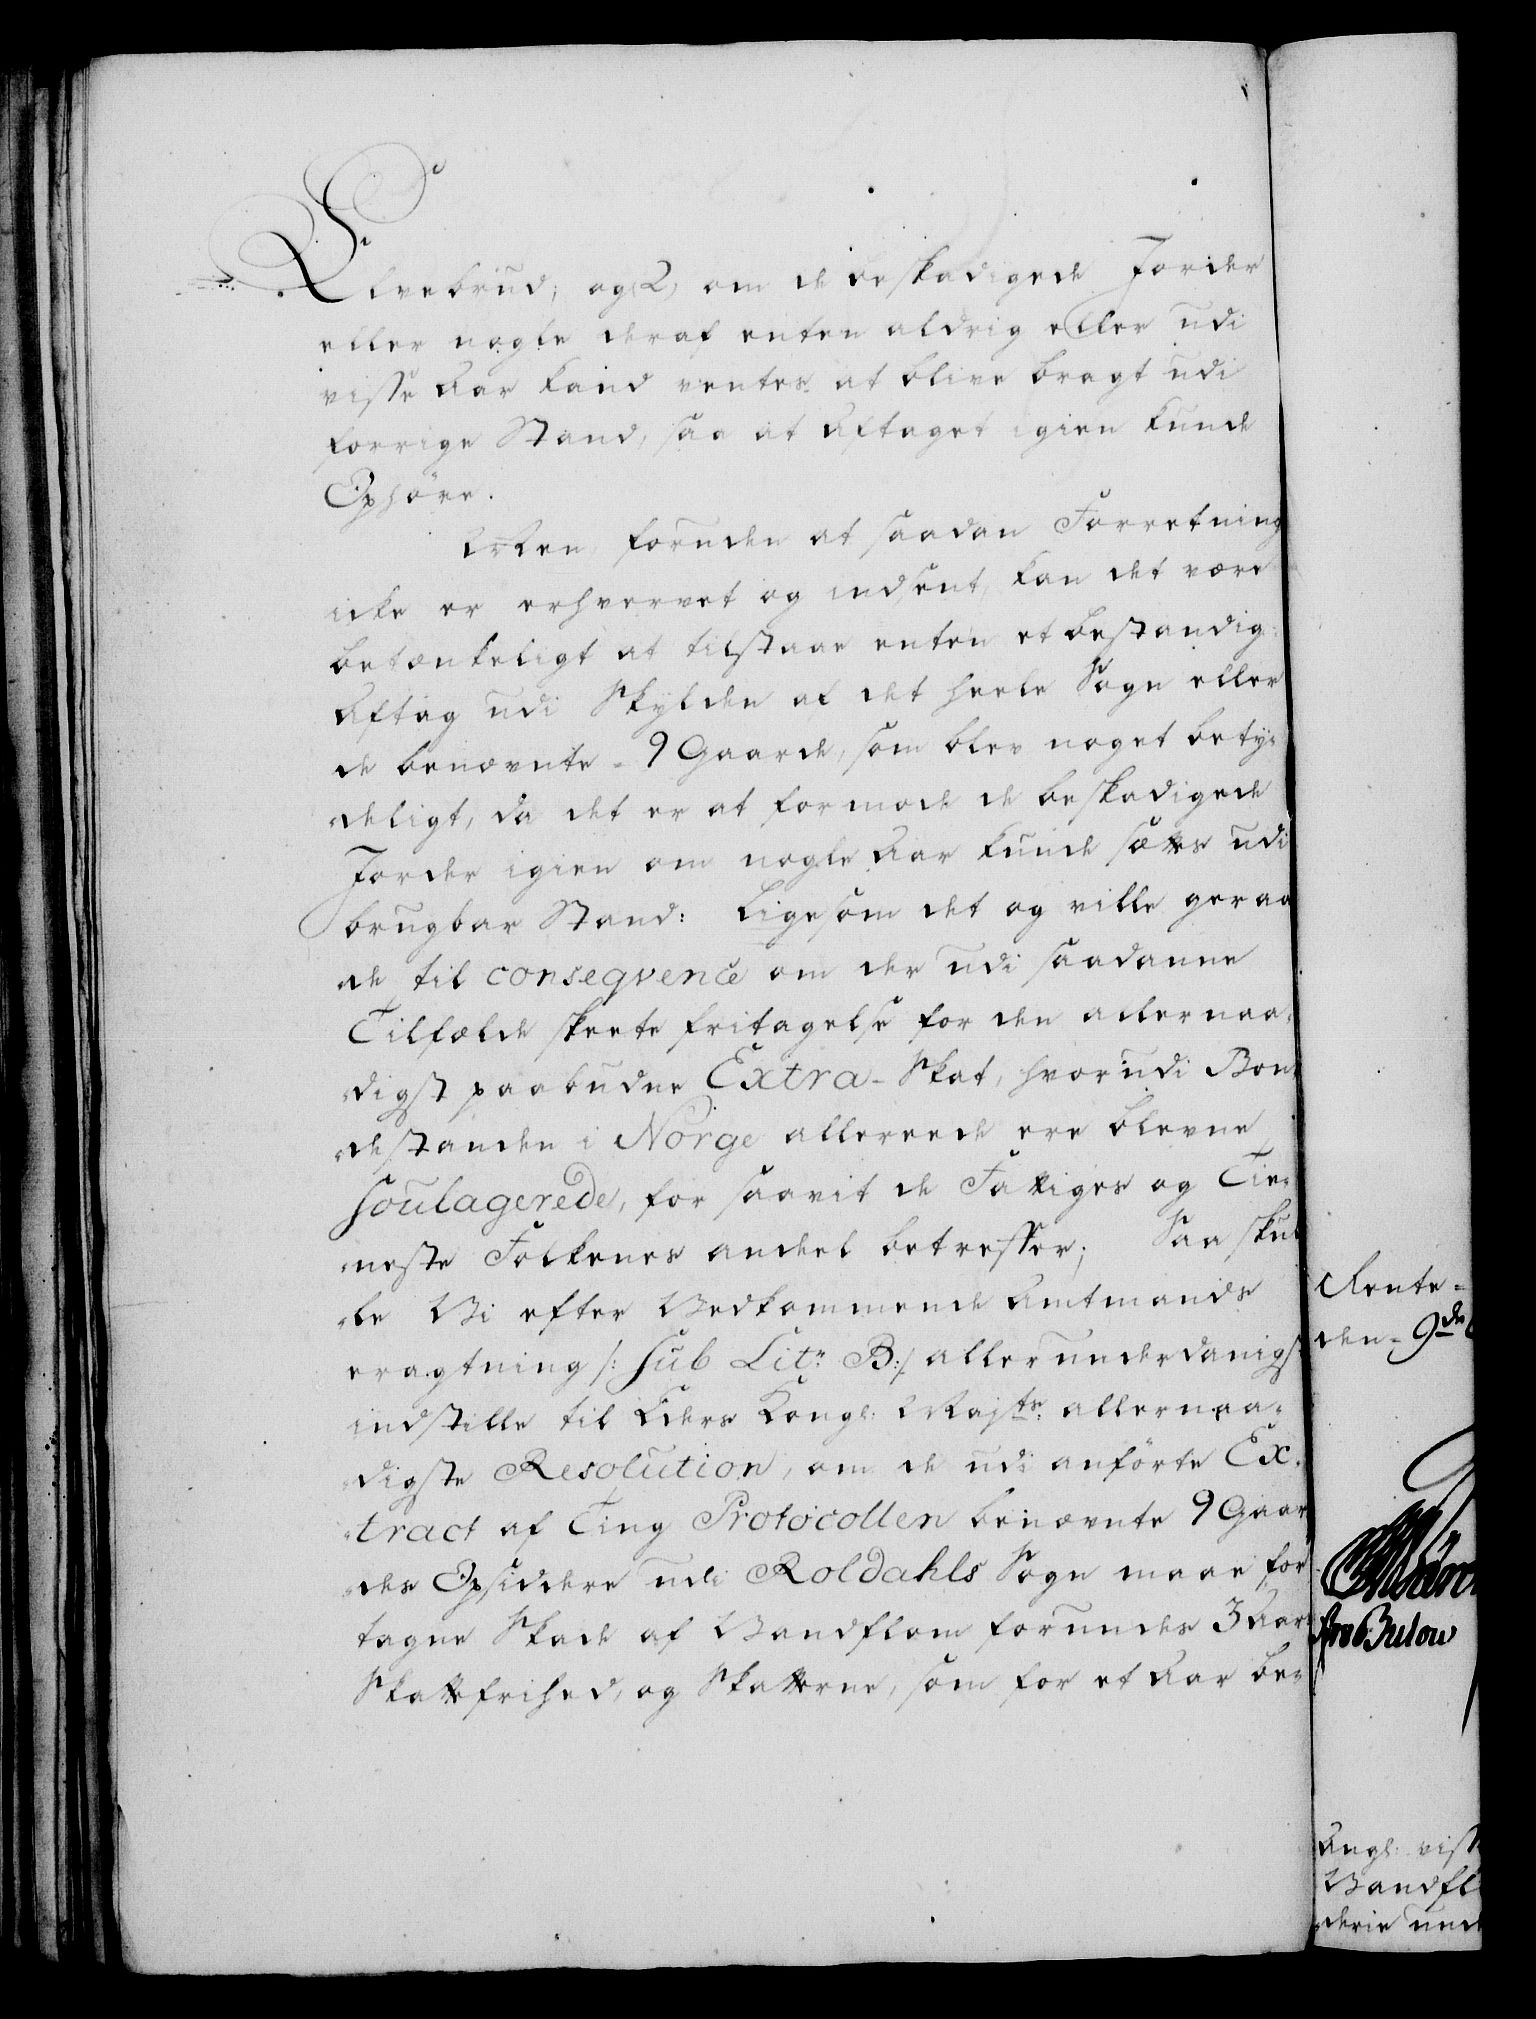 Elvebrud; og 2, om de beskadigede Jorder
eller nogle deraf enten aldrig eller udi
visse Aar kand ventes at blive bragt udi
forrige Stand, saa at Aftaget igien kunde
Ophöre.
Men foruden at saadan Forretning
icke er erhvervet og indsent, kan det være
betænkeligt at tilstaae enten et bestandig
Aftag udi Skylden af det heele Sogn eller
de benævnte 9 Gaarde, som blev noget bety-
deligt, da det er at formode de beskadigede
Jorder igien om nogle Aar kunde sættes udi
brugbar Stand: Ligesom det og ville geraa
de til conseqvence om der udi saadanne
Tilfælde skeete fritagelse for den allernaa-
digst paabudne Extra-Skat, hvorudi Bon-
destanden i Norge allereede ere blevne
soulagerede, for saavit de Fattiges og Tie-
neste Folkenes andeel betreffer; Saa skul
le Vi efter Vedkommende Amtmands
eragtning /: sub Litr B:/ allerunderdanigst
indstille til Eders Kongl: Majts allernaa-
digste Resolution, om de udi anförte Ex-
tract af Ting Protocollen benævnte 9 Gaar
des Opsiddere udi Roldahls Sogn maae for
tagne Skade af Vandflom forundes 3 Aars
Skattefrihed, og Skatterne, som for et Aar be-
Rente-
den 9de
Bulow
Angl: viss
Vandfl
derie und